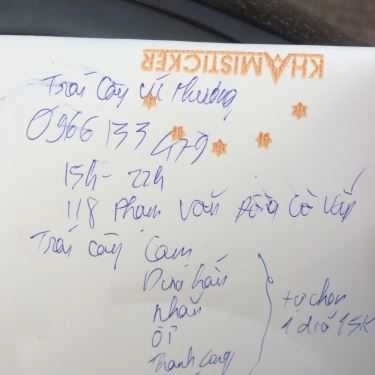 KHAMISTICKER
Trái Cây Út Phương
0966 133 479
15h - 22h
118 Phạm Văn Đồng Gò Vấp
Trái cây Cam
Dưa hấu
nhãn
ổi
Thanh Long
tự chọn
1 dĩa 15K